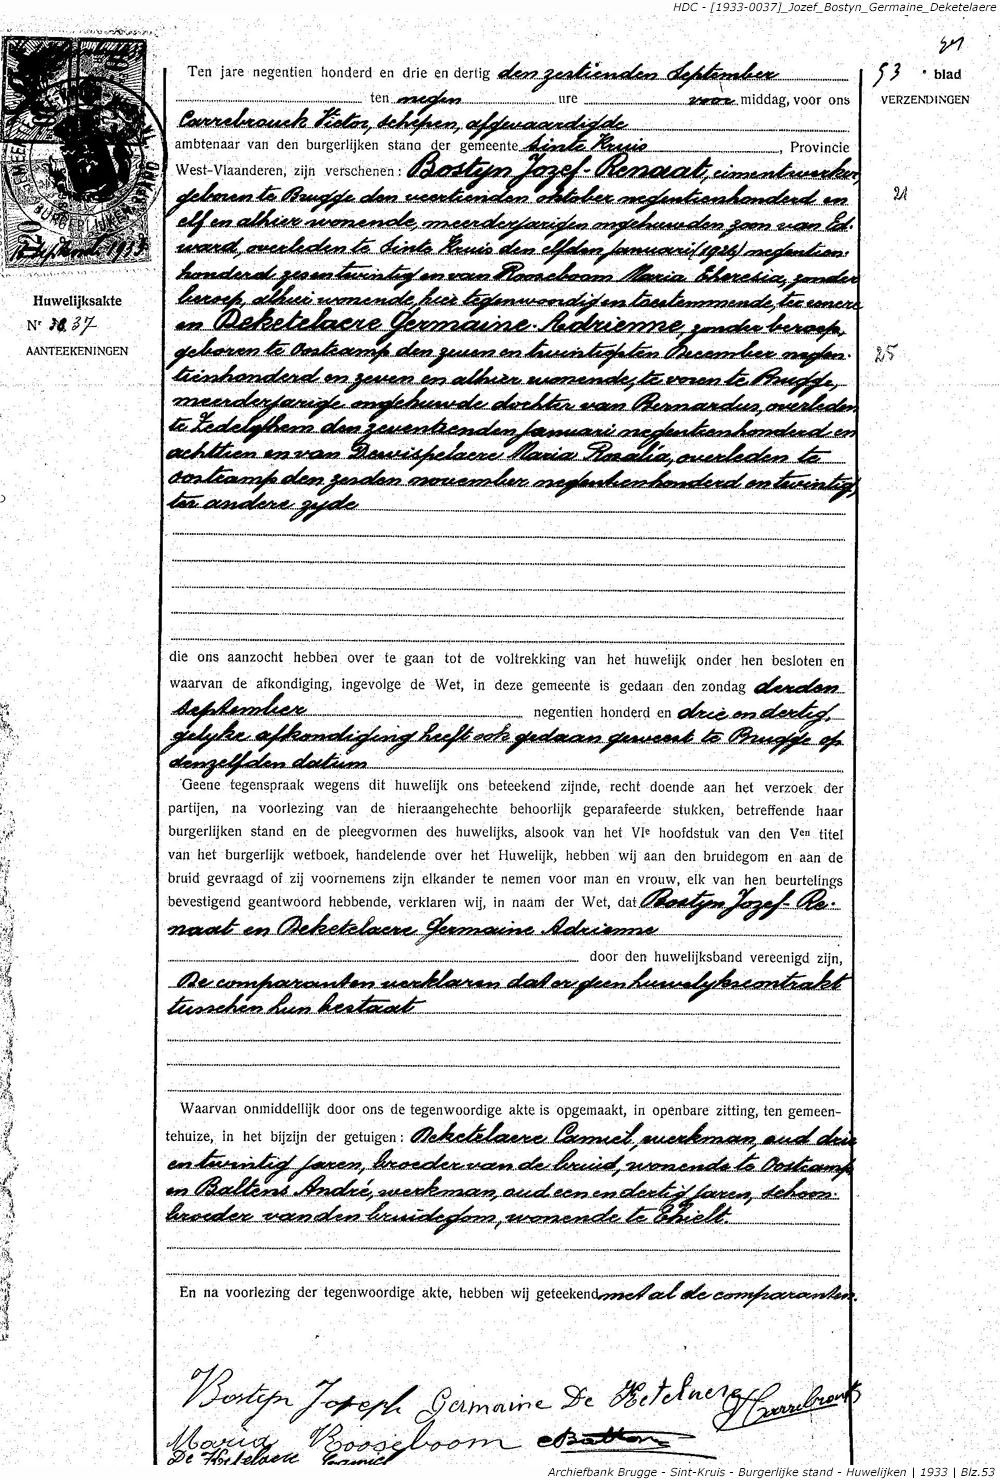 HDC - [1933-0037]_Jozef_Bostyn_Germaine_Deketelaere
53 · blad
VERZENDINGEN
Ten jare negentien honderd en drie en dertig den zestienden September
ten negen ure voor middag, voor ons
Carrebrouck Victor, schepen, afgevaardigde
ambtenaar van den burgerlijken stand der gemeente Sinte Kruis, Provincie
West-Vlaanderen, zijn verschenen : Bostyn Jozef-Renaat, cimentwerker,
geboren te Brugge den veertienden oktober negentienhonderd en
21
elf en alhier wonende, meerderjarigen ongehuwden zoon van Ed-
ward, overleden te Sinte Kruis den elfden Januari (1926) negentien-
honderd zesentwintig en van Rooseboom Maria Theresia, zonder
beroep, alhier wonende, hier tegenwoordig en toestemmende, ter eenere
Huwelijksakte
Nr 37
AANTEEKENINGEN
en Deketelaere Germaine-Adrienne, zonder beroep,
geboren te Oostcamp den zeven en twintigsten December negen-
25
tienhonderd en zeven en alhier wonende, te voren te Brugge,
meerderjarige ongehuwde dochter van Bernardus, overleden
te Zedelghem den zeventienden Januari negentienhonderd en
achttien en van Dewispelaere Maria Rosalia, overleden te
Oostcamp den zesden november negentienhonderd en twintig,
ter andere zyde
die ons aanzocht hebben over te gaan tot de voltrekking van het huwelijk onder hen besloten en
waarvan de afkondiging, ingevolge de Wet, in deze gemeente is gedaan den zondag derden
September negentien honderd en drie en dertig,
gelyke afkondiging heeft ook gedaan geweest te Brugge op
denzelfden datum
Geene tegenspraak wegens dit huwelijk ons beteekend zijnde, recht doende aan het verzoek der
partijen, na voorlezing van de hieraangehechte behoorlijk geparafeerde stukken, betreffende haar
burgerlijken stand en de pleegvormen des huwelijks, alsook van het VIe hoofdstuk van den Ven titel
van het burgerlijk wetboek, handelende over het Huwelijk, hebben wij aan den bruidegom en aan de
bruid gevraagd of zij voornemens zijn elkander te nemen voor man en vrouw, elk van hen beurtelings
bevestigend geantwoord hebbende, verklaren wij, in naam der Wet, dat Bostyn Jozef-Re-
naat en Deketelaere Germaine Adrienne
door den huwelijksband vereenigd zijn,
De comparanten verklaren dat er geen huwelykscontrakt
tusschen hun bestaat
Waarvan onmiddellijk door ons de tegenwoordige akte is opgemaakt, in openbare zitting, ten gemeen-
tehuize, in het bijzijn der getuigen : Deketelaere Camiel, werkman, oud drie
en twintig jaren, broeder van de bruid, wonende te Oostcamp
en Baltens André, werkman, oud een en dertig jaren, schoon-
broeder van den bruidegom, wonende te Thielt.
En na voorlezing der tegenwoordige akte, hebben wij geteekend met al de comparanten.
Bostyn Joseph Germaine De Ketelaere V Carrebrouck
Maria Rooseboom
De Ketelaere Camiel
Archiefbank Brugge - Sint-Kruis - Burgerlijke stand - Huwelijken | 1933 | Blz.53